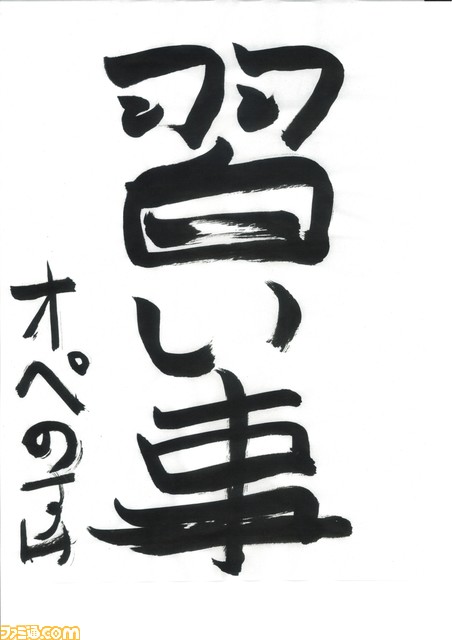 習い事
オペのすけ
ファミ通.com